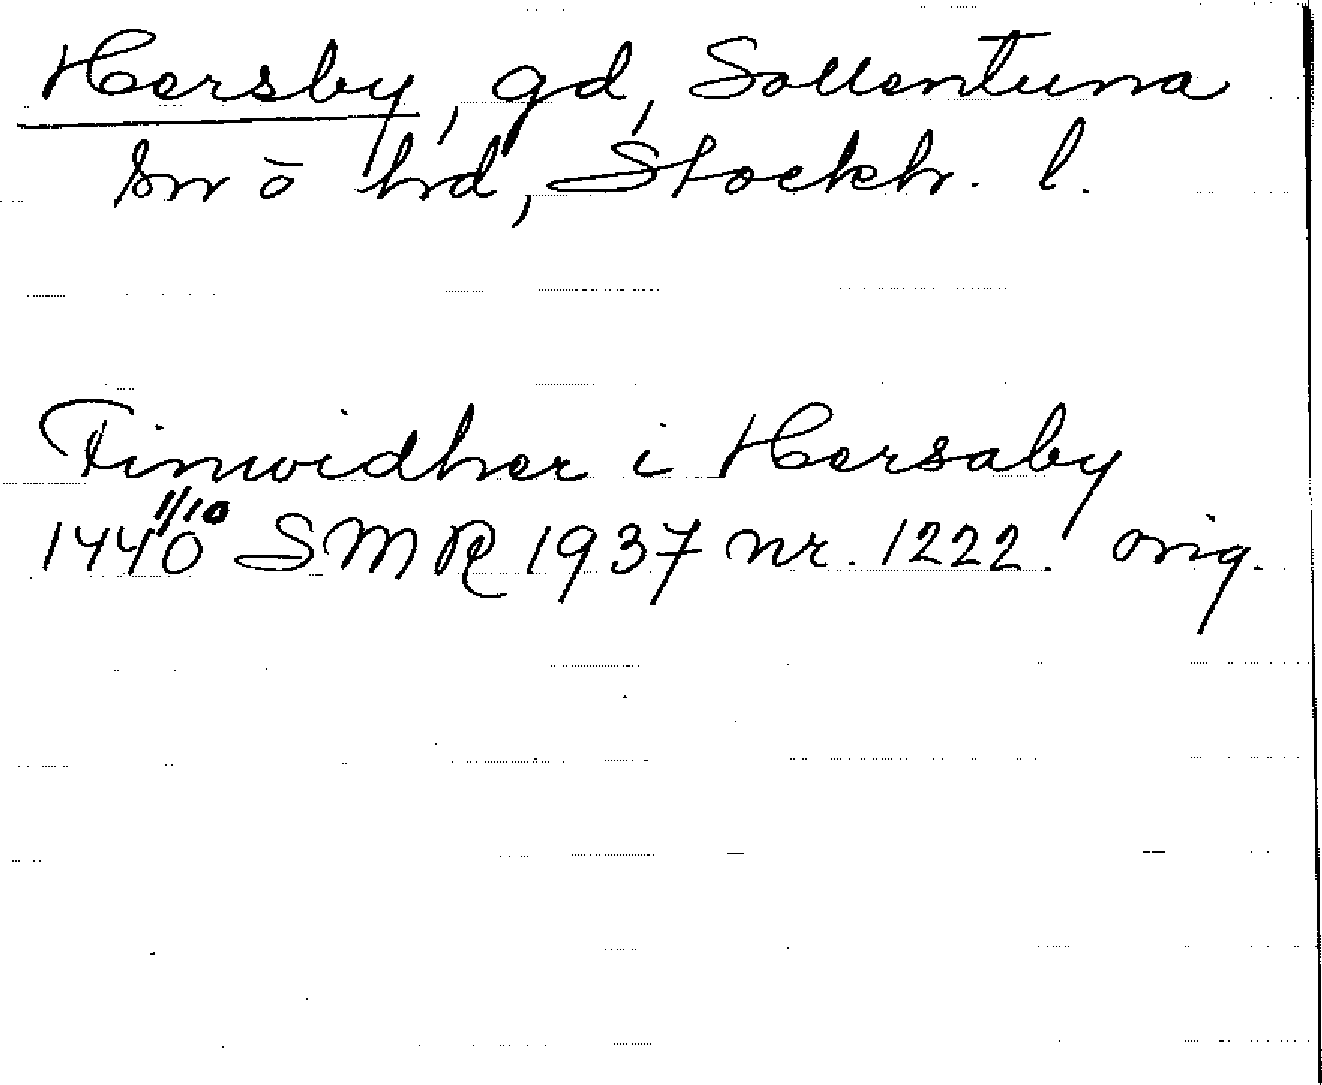 Hersby, gd, Sollentuna
sn o hd, Stockh. l.
Finwidher i Hersaby
1440 1/10 SMR 1937 nr. 1222. orig.